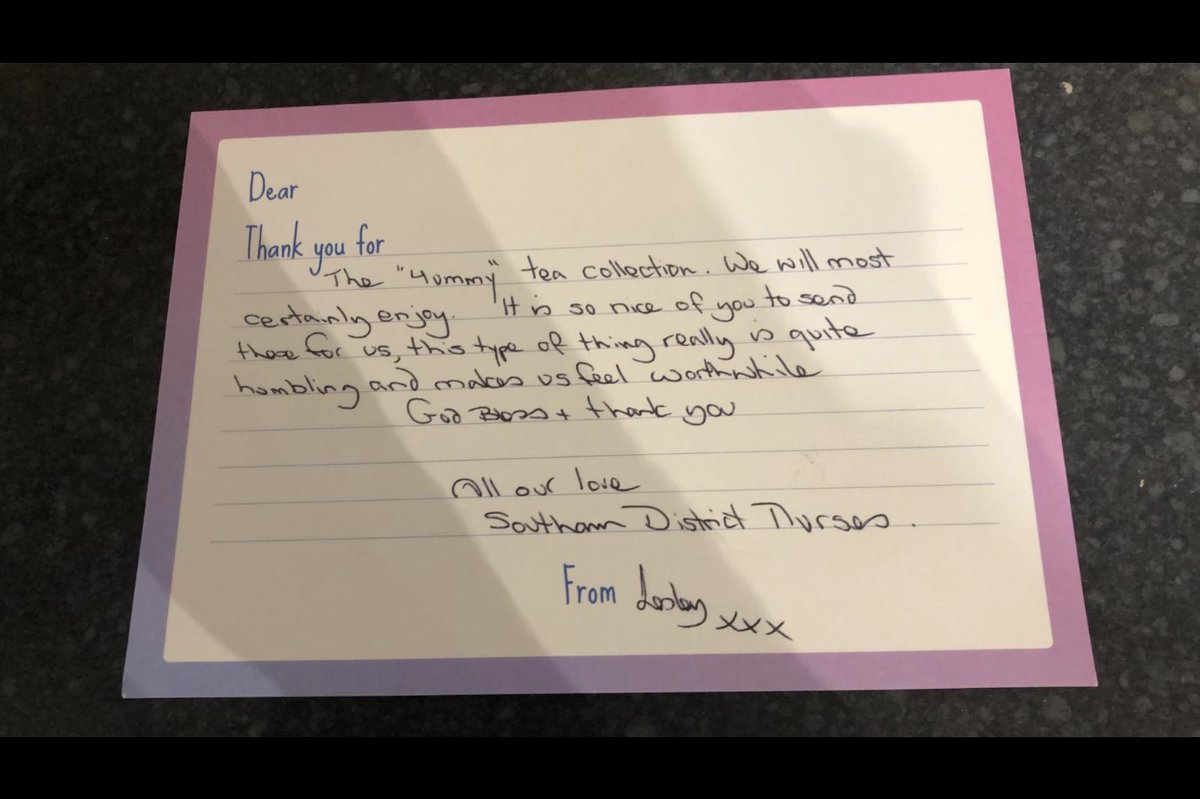 Dear
Thank you for
The "Yummy" tea collection. We will most
certainly enjoy. It is so nice of you to send
these for us, this type of thing really is quite
humbling and makes us feel worthwhile
God Bless + thank you
All our love
Southam District Nurses.
From Lesley xxx